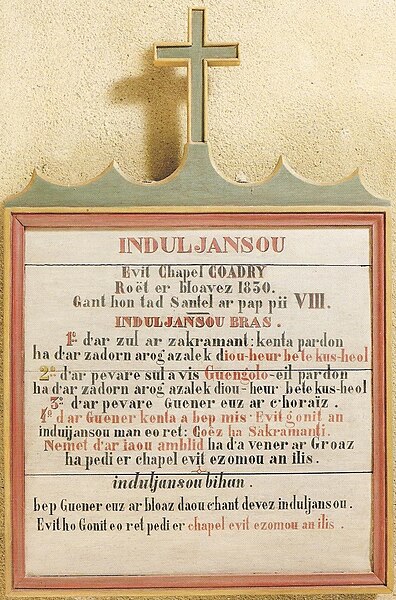 INDULJANSOU
Evit Chapel COADRY
Roët er bloavez 1830.
Gant hon tad Santel ar pap pii VIII.
INDULJANSOU BRAS.
1º d'ar zul ar zakramant: kenta pardon
ha d'ar zadorn arog azalek diou-heur bete kus-heol
2º d'ar pevare sul a vis Guengolo-eil pardon
ha d'ar zadorn arog azalek diou-heur bete kus-heol
3º d'ar pevare Guener euz ar c'horaïz.
4º d'ar Guener kenta a bep mis: Evit gonit an
induljansou man eo ret: Coëz ha Sakramanti.
Nemet d'ar iaou amblid ha d'a vener ar Groaz
ha pedi er chapel evit ezomou an ilis.
induljansou bihan.
bep Guener euz ar bloaz daou c'hant devez induljansou.
Evit ho Gonit eo ret pedi er chapel evit ezomou an ilis.